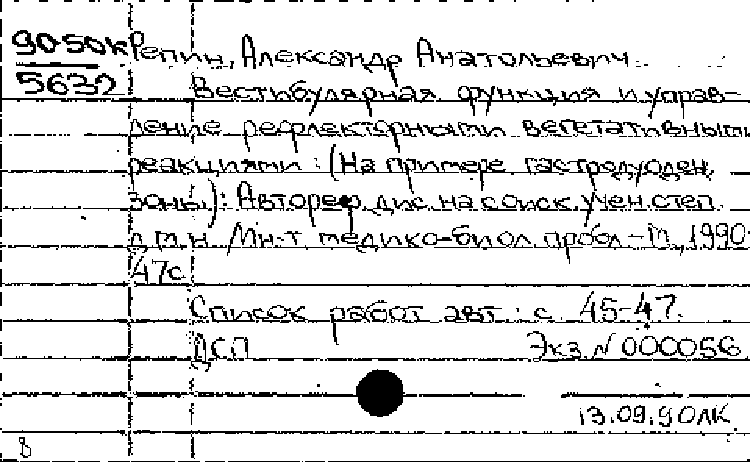 90-50к Репин, Александр Анатольевич.
5632 Вестибулярная функция и управ-
ление рефлекторными вегетативными
реакциями : (На примере гастродуоден.
зоны) : Автореф. дис. на соиск. учен. степ.
д.м.н. / Ин-т медико-биол. пробл. - М., 1990.
47с.
Список работ авт.: с. 45-47.
ДСП Экз. N 000056
13.09.90ЛК
8